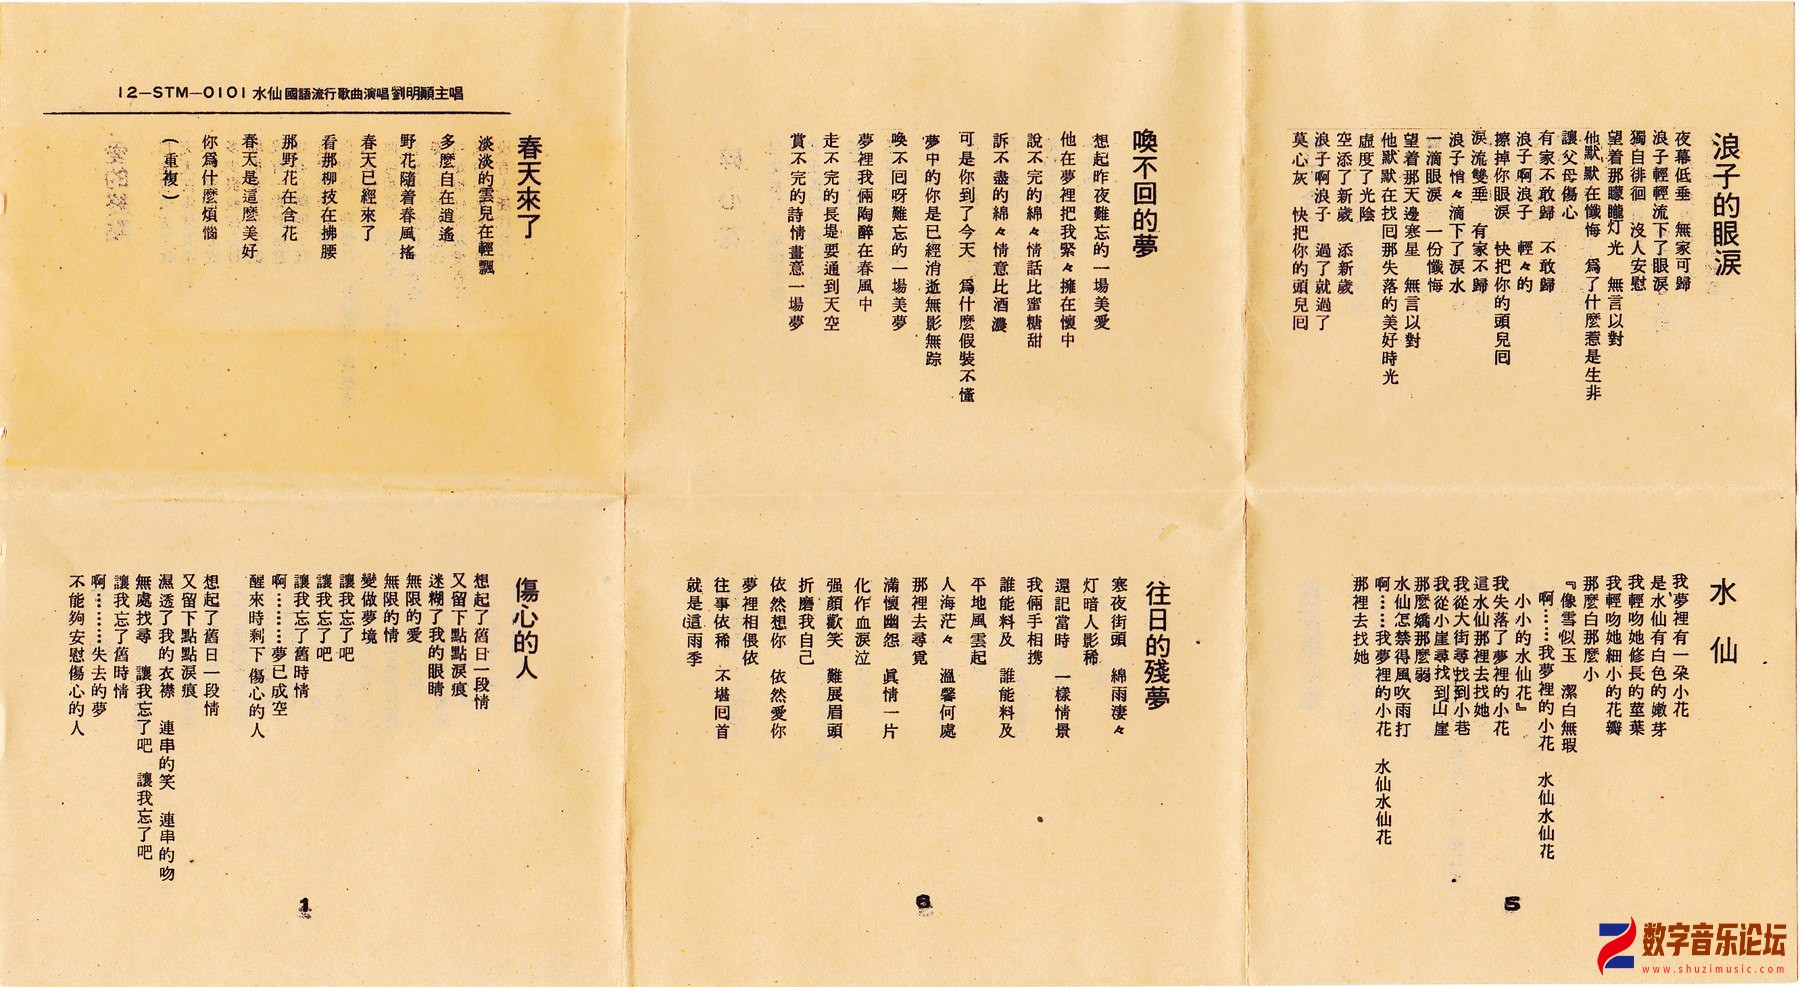 浪子的眼淚
夜幕低垂 無家可歸
浪子輕輕流下了眼淚
獨自徘徊 沒人安慰
望着那矇矓灯光 無言以對
他默默在懺悔 爲了什麼惹是生非
讓父母傷心
有家不敢歸 不敢歸
浪子啊浪子 輕々的
擦掉你眼淚 快把你的頭兒囘
淚流雙垂 有家不歸
浪子悄々滴下了淚水
一滴眼淚 一份懺悔
望着那天邊寒星 無言以對
他默默在找囘那失落的美好時光
虛度了光陰
空添了新歲 添新歲
浪子啊浪子 過了就過了
莫心灰 快把你的頭兒囘
水仙
我夢裡有一朵小花
是水仙有白色的嫩芽
我輕吻她修長的莖葉
我輕吻她細小的花瓣
那麼白那麼小
『像雪似玉 潔白無瑕
啊……我夢裡的小花 水仙水仙花
小小的水仙花』
我失落了夢裡的小花
這水仙那裡去找她
我從大街尋找到小巷
我從小崖尋找到山崖
那麼嬌那麼弱
水仙怎禁得風吹雨打
啊……我夢裡的小花 水仙水仙花
那裡去找她
5
喚不回的夢
想起昨夜難忘的一場美愛
他在夢裡把我緊々擁在懷中
說不完的綿々情話比蜜糖甜
訴不盡的綿々情意比酒濃
可是你到了今天 爲什麼假裝不懂
夢中的你是已經消逝無影無踪
喚不囘呀難忘的一場美夢
夢裡我倆陶醉在春風中
走不完的長堤要通到天空
賞不完的詩情畫意一場夢
往日的殘夢
寒夜街頭 綿雨淒々
灯暗人影稀
還記當時 一樣情景
我倆手相携
誰能料及 誰能料及
平地風雲起
人海茫々 溫馨何處
那裡去尋覓
滿懷幽怨 眞情一片
化作血淚泣
强顏歡笑 難展眉頭
折磨我自己
依然想你 依然愛你
夢裡相偎依
往事依稀 不堪囘首
就是這雨季
6
12—STM—0101 水仙 國語流行歌曲演唱 劉明顯主唱
春天來了
淡淡的雲兒在輕飄
多麼自在逍遙
野花隨着春風搖
春天已經來了
看那柳技在拂腰
那野花在含花
春天是這麼美好
你爲什麼煩惱
(重複)
傷心的人
想起了舊日一段情
又留下點點淚痕
迷糊了我的眼睛
無限的愛
無限的情
變做夢境
讓我忘了吧
讓我忘了吧
讓我忘了舊時情
啊…………夢已成空
醒來時剩下傷心的人
想起了舊日一段情
又留下點點淚痕
濕透了我的衣襟 連串的笑 連串的吻
無處找尋 讓我忘了吧 讓我忘了吧
讓我忘了舊時情
啊…………失去的夢
不能夠安慰傷心的人
1
数字音乐论坛
www.shuzimusic.com